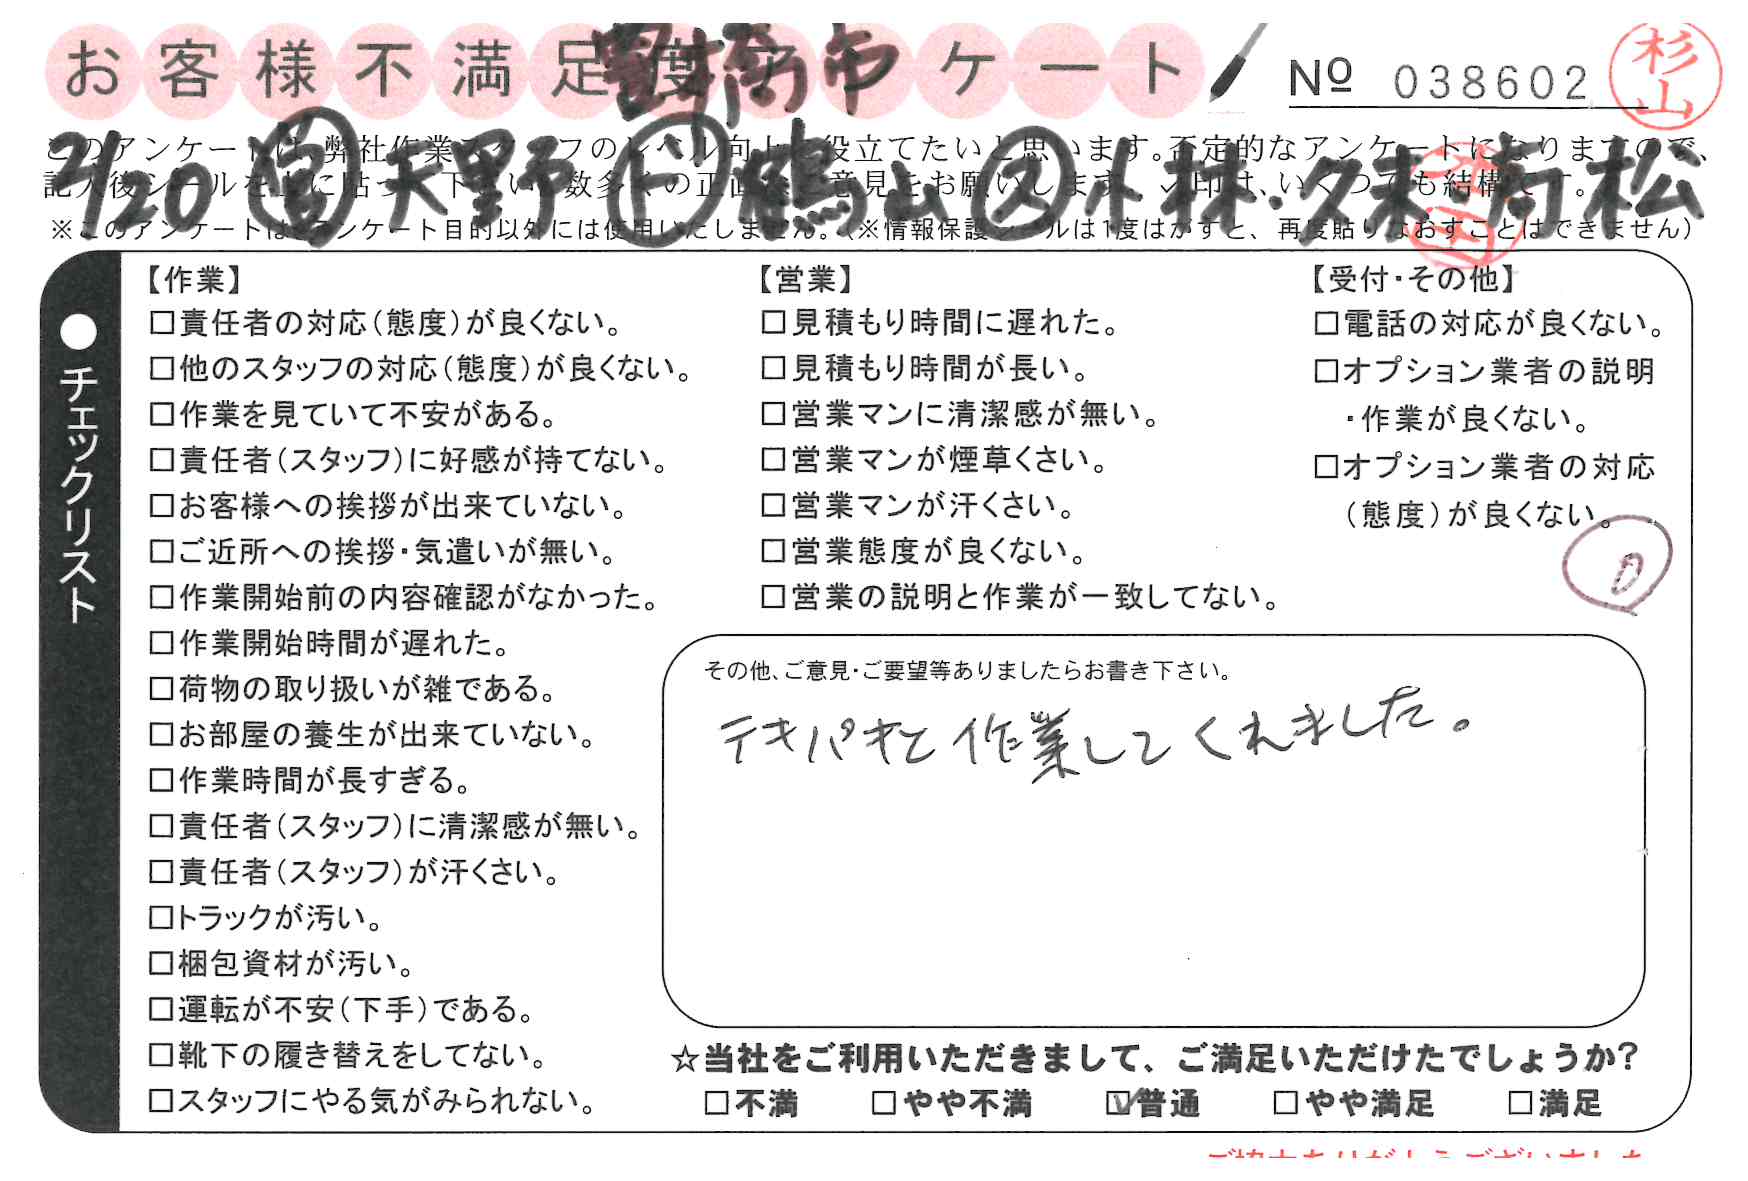 お客様不満足度アンケート
豊橋市
№ 038602
杉山
このアンケートは、弊社作業スタッフのレベル向上に役立てたいと思います。否定的なアンケートになりますので、
2/20 天野 ト 鶴山 ス 小林・久末・高松
※このアンケートはアンケート目的以外には使用いたしません。（※情報保護シールは1度はがすと、再度貼りなおすことはできません）
●チェックリスト
【作業】
□責任者の対応（態度）が良くない。
□他のスタッフの対応（態度）が良くない。
□作業を見ていて不安がある。
□責任者（スタッフ）に好感が持てない。
□お客様への挨拶が出来ていない。
□ご近所への挨拶・気遣いが無い。
□作業開始前の内容確認がなかった。
□作業開始時間が遅れた。
□荷物の取り扱いが雑である。
□お部屋の養生が出来ていない。
□作業時間が長すぎる。
□責任者（スタッフ）に清潔感が無い。
□責任者（スタッフ）が汗くさい。
□トラックが汚い。
□梱包資材が汚い。
□運転が不安（下手）である。
□靴下の履き替えをしてない。
□スタッフにやる気がみられない。
【営業】
□見積もり時間に遅れた。
□見積もり時間が長い。
□営業マンに清潔感が無い。
□営業マンが煙草くさい。
□営業マンが汗くさい。
□営業態度が良くない。
□営業の説明と作業が一致してない。
【受付・その他】
□電話の対応が良くない。
□オプション業者の説明
・作業が良くない。
□オプション業者の対応
（態度）が良くない。
0
その他、ご意見・ご要望等ありましたらお書き下さい。
テキパキと作業してくれました。
☆当社をご利用いただきまして、ご満足いただけたでしょうか？
□不満 □やや不満 ☑普通 □やや満足 □満足